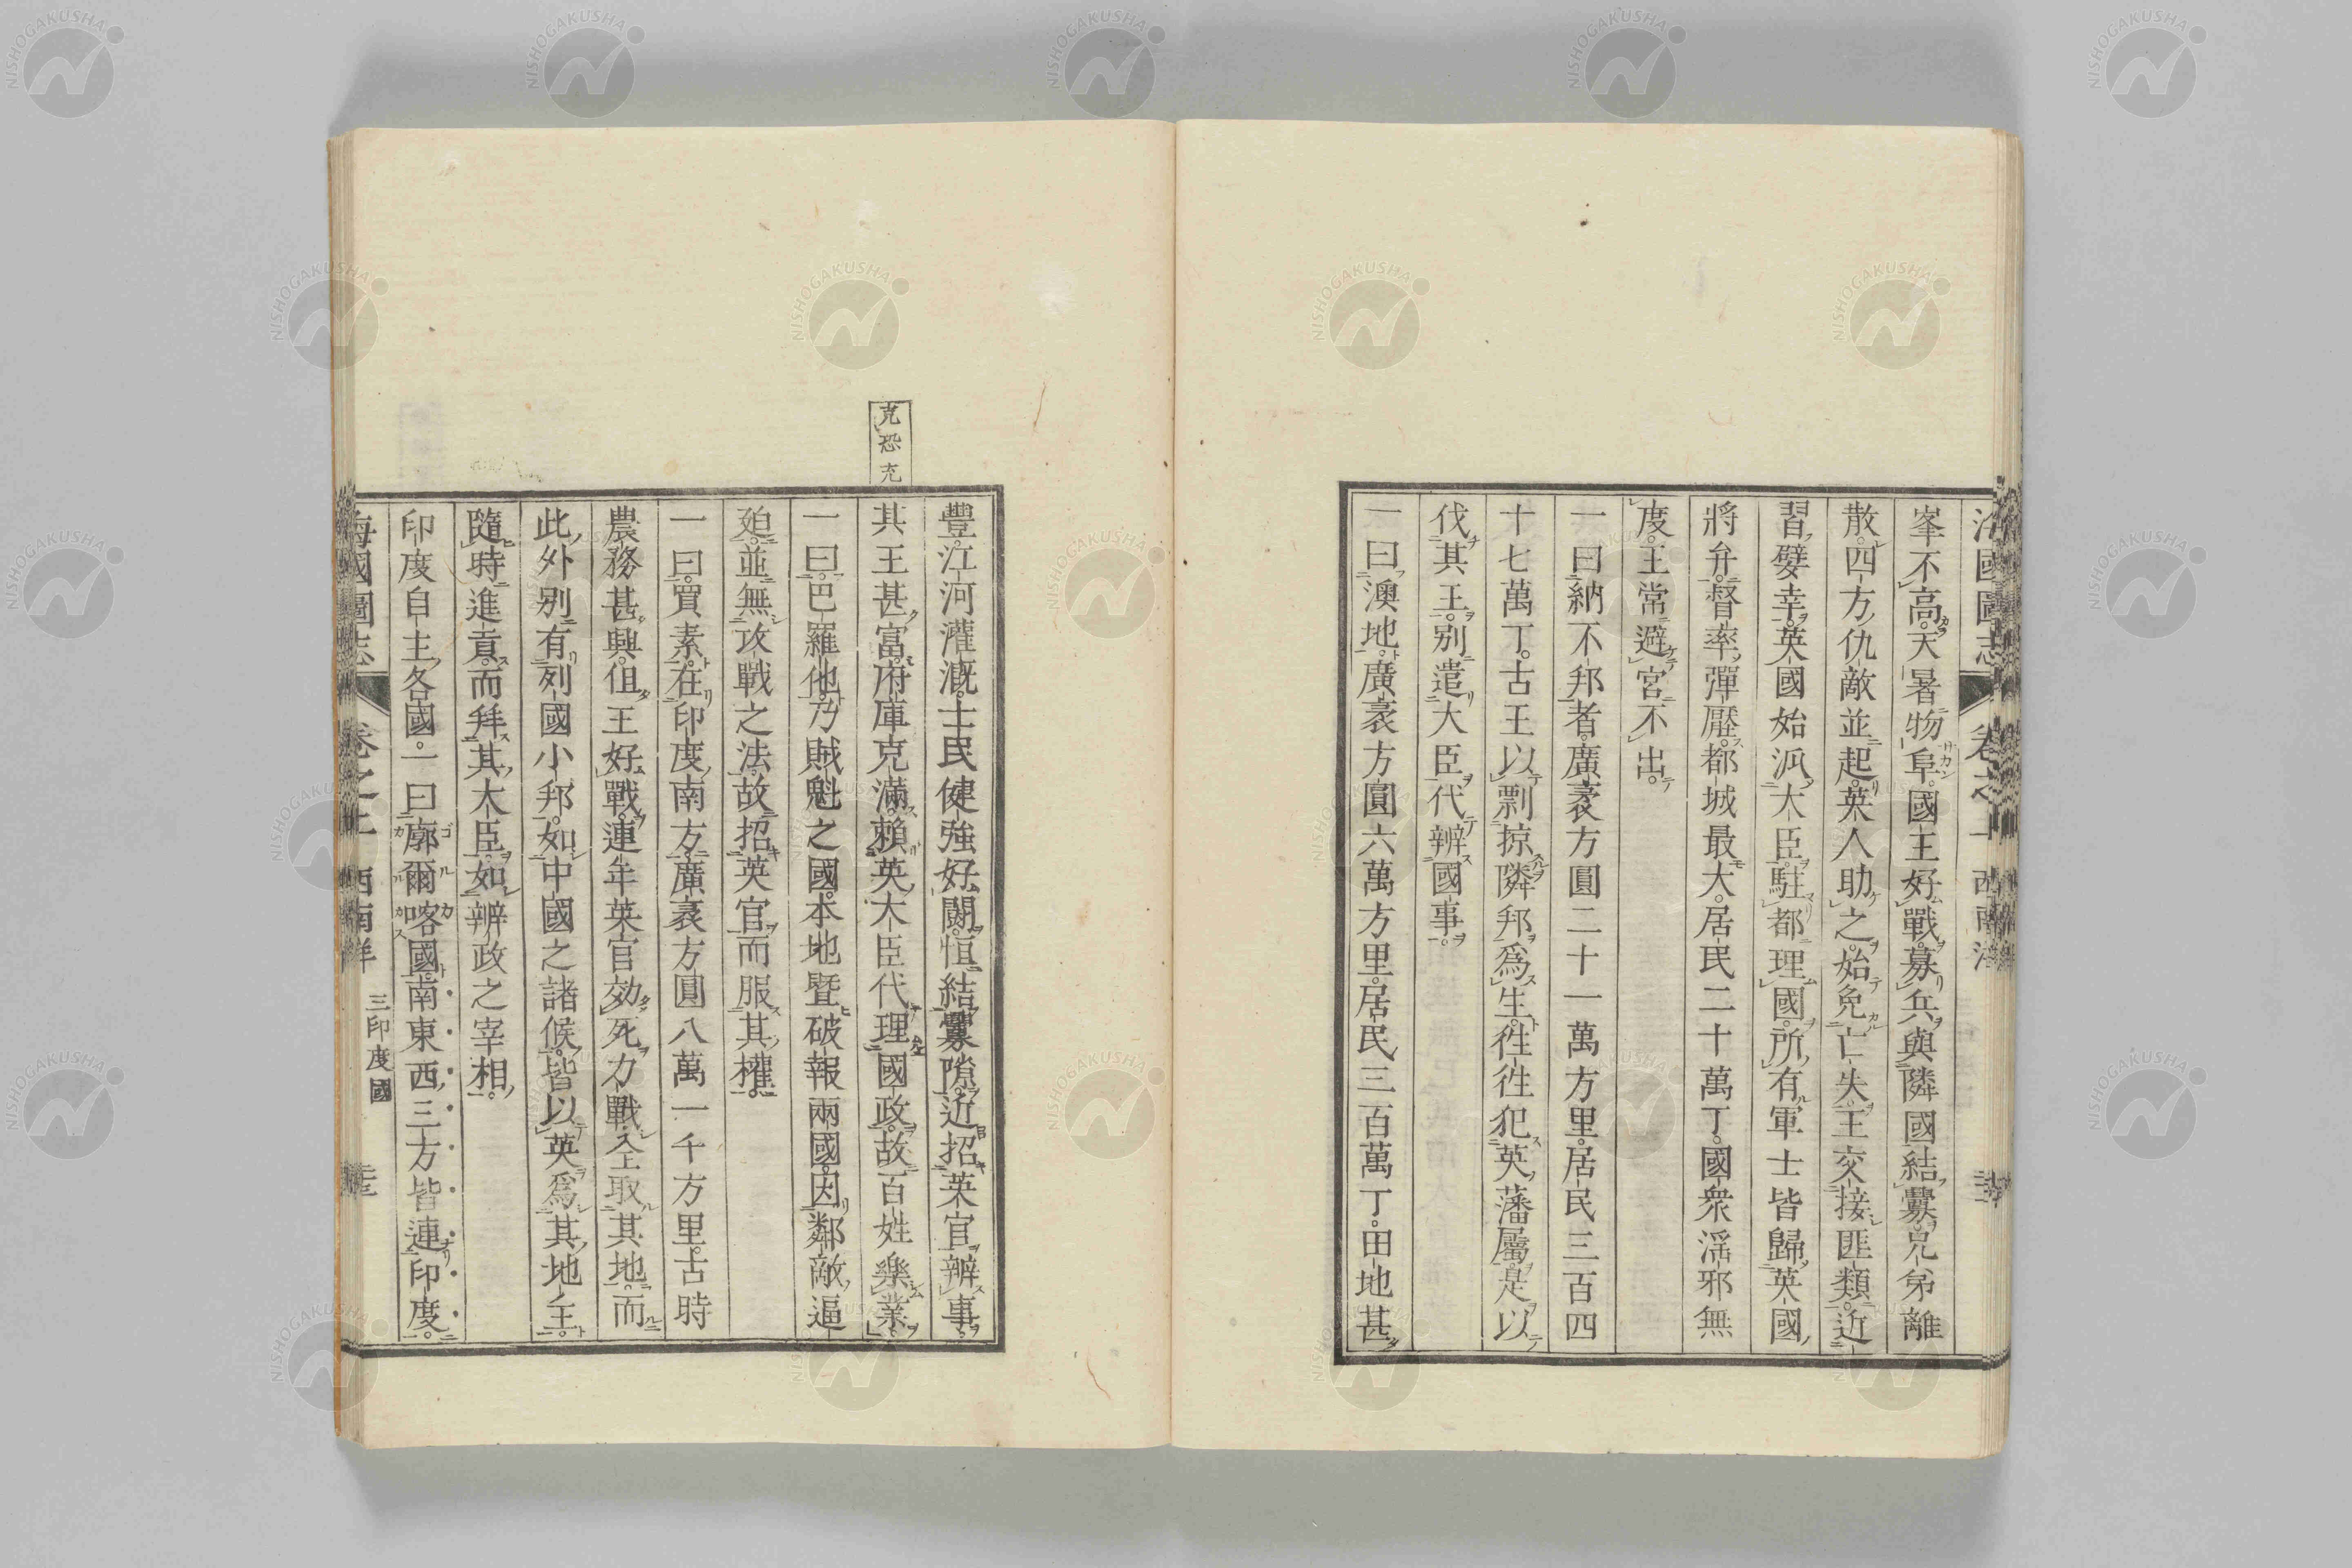 海國圖志 卷之
峯不高天暑物阜。國王好戰。募兵與隣國結釁。兄弟離
散。四方仇敵並起。英人助之。始免亡失。王交接匪類。近
習嬖幸。英國始派大臣。駐都理國。所有軍士皆歸英國
將弁。督率彈壓。都城最大。居民二十萬丁。國衆淫邪無
度。王常避宮不出。
一曰納不邦者。廣袤方圓二十一萬方里。居民三百四
十七萬丁。古王以剽掠隣邦爲生。徃徃犯英藩屬。是以
伐其王。別遣大臣代辨國事。
一曰澳地。廣袤方圓六萬方里。居民三百萬丁。田地甚
克恐充
豐。江河灌漑。士民健強好鬭。恒結釁隙。近招英官辨事。
其王甚富。府庫克滿。賴英大臣代理國政。故百姓樂業。
一曰巴羅他。乃賊魁之國。本地曁破報兩國。因鄰敵逼
廹。並無攻戰之法。故招英官而服其權。
一曰買素。在印度南方。廣袤方圓八萬一千方里。古時
農務甚興。但王好戰。連年英官効死力戰。仝取其地。而
此外別有列國小邦。如中國之諸候。皆以英爲其地主。
隨時進貢。而拜其大臣。如辨政之宰相。
印度自主各國。一曰廓爾喀國。南東西三方皆連印度。
海國圖志 卷之 西南洋 三印度國